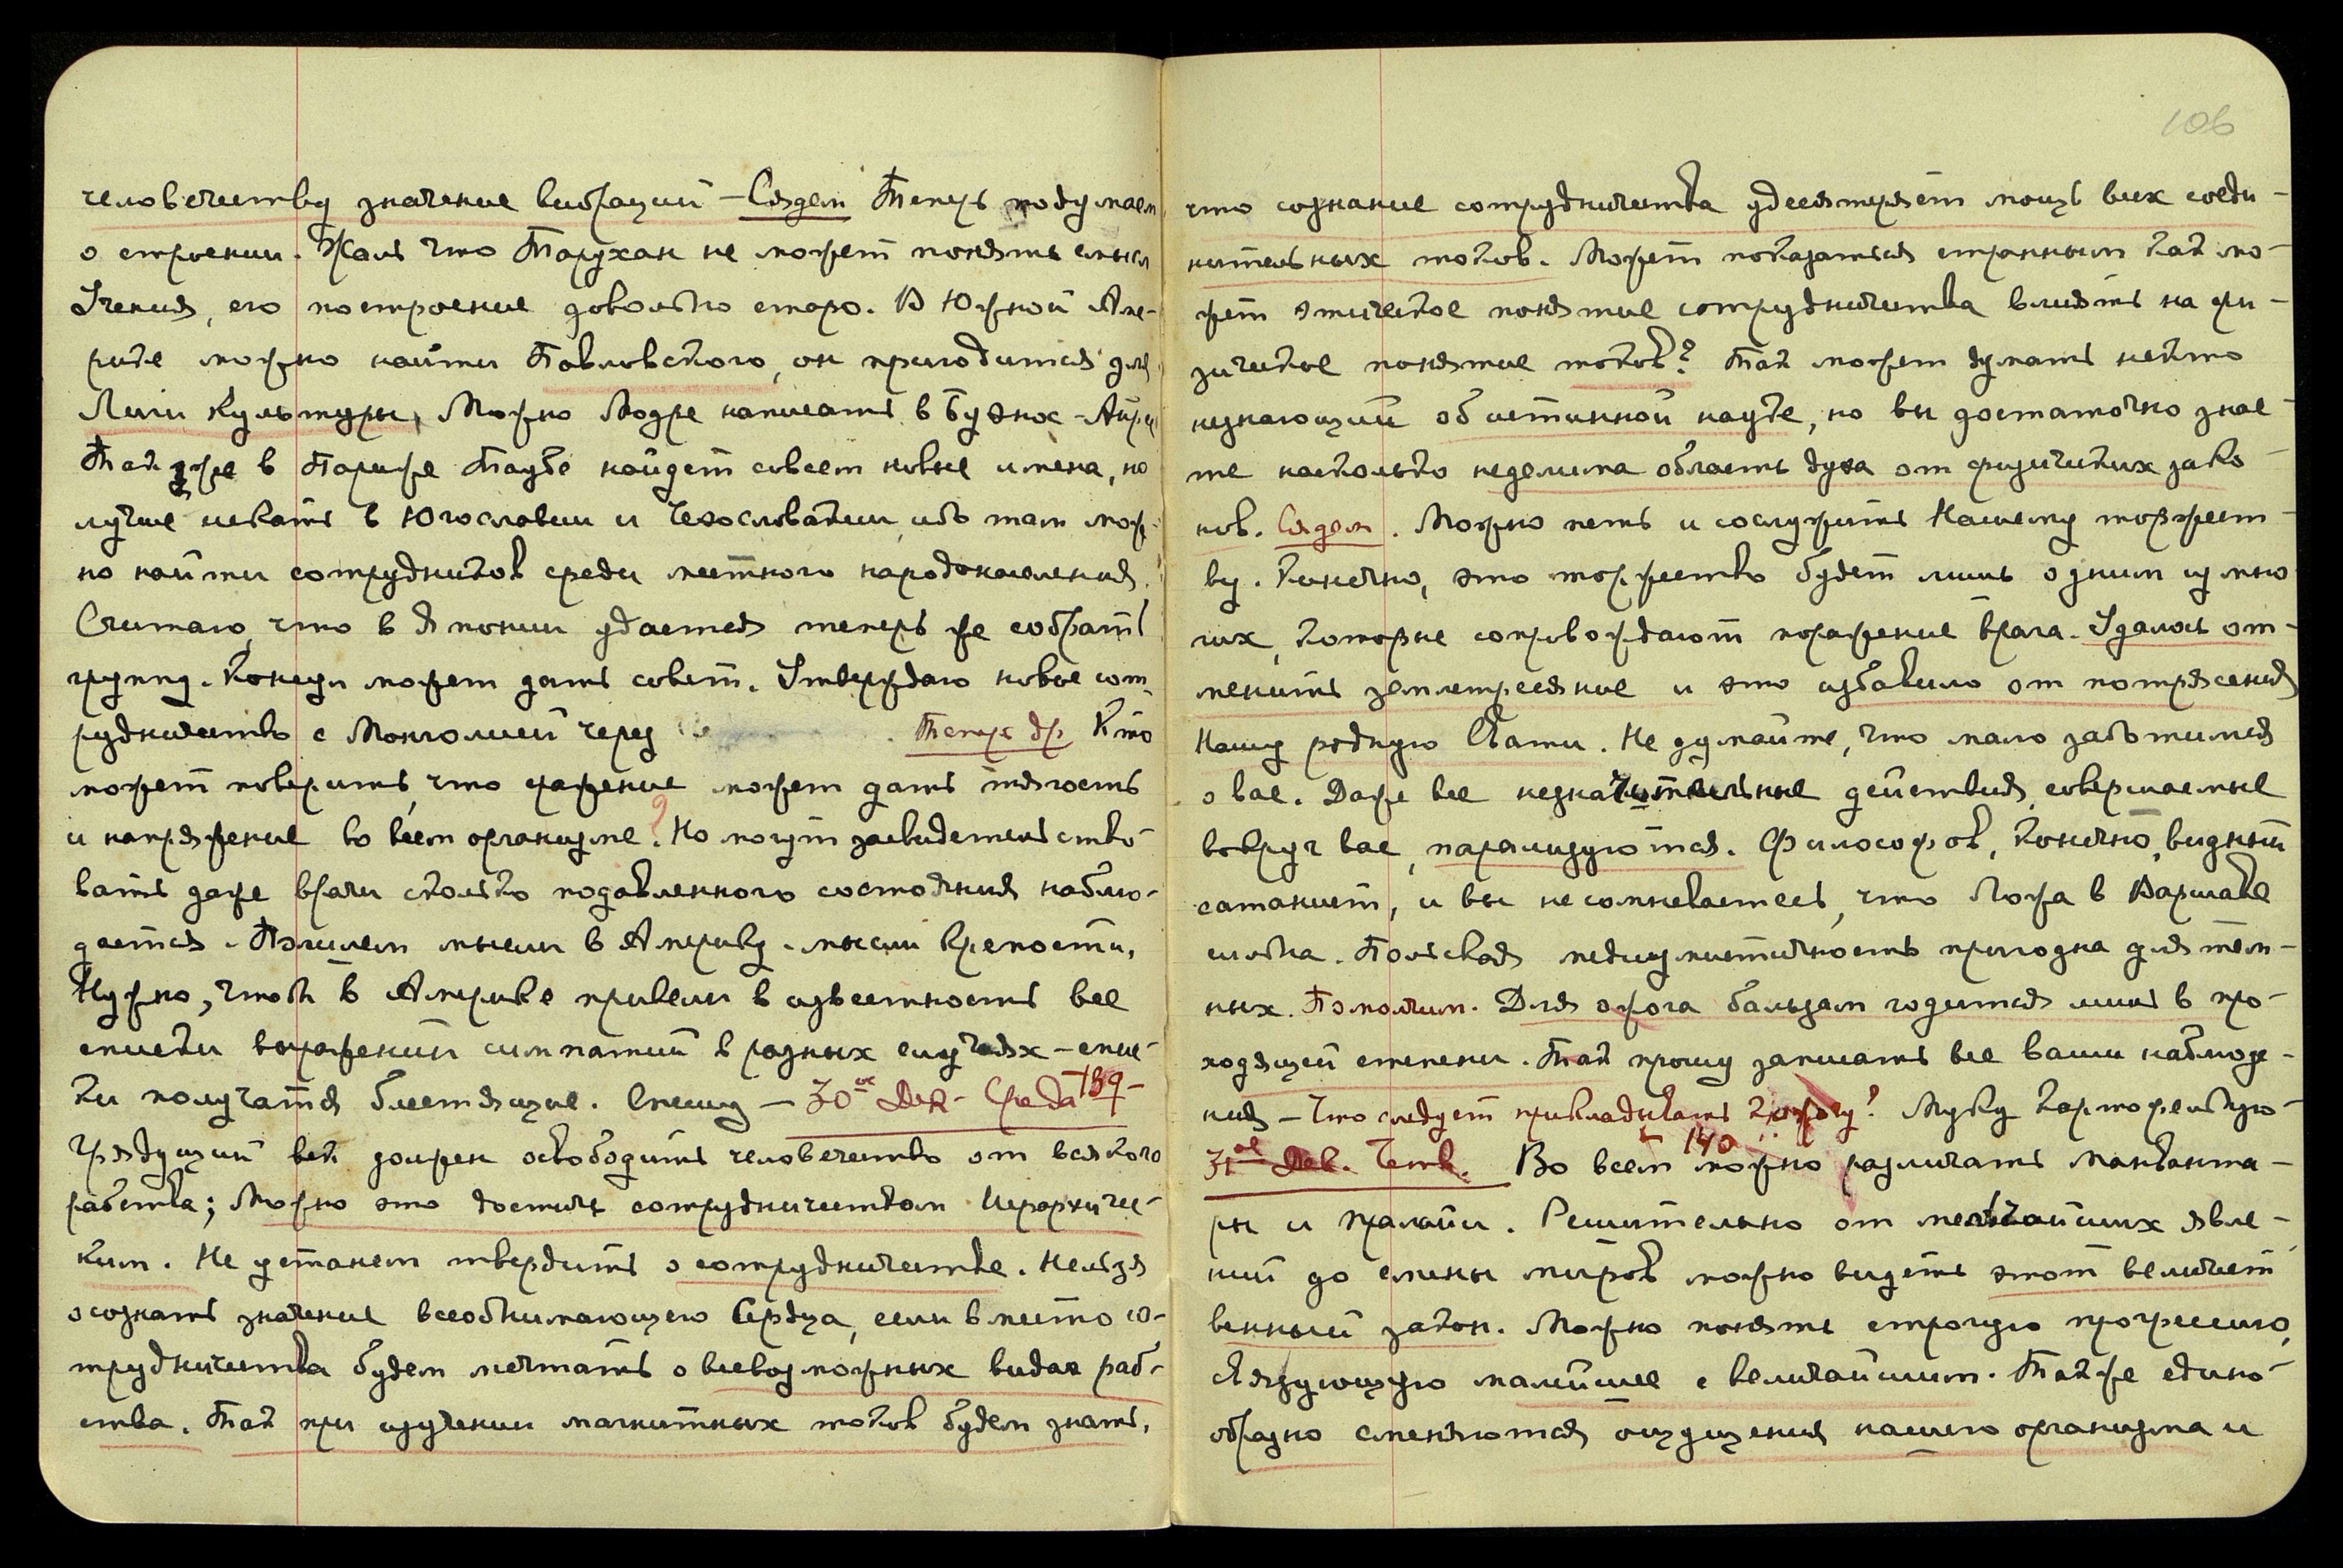 человечеству значение вибраций – Сядем Теперь подумаем
о строении. Жаль что Тарухан не может понять смысл
Учения, его построение довольно старо. В Южной Аме-
рике можно найти Павловского, он пригодится для
Лиги Культуры, Можно Модре написать в Буэнос-Айрес
Также в Париже Таубе найдет совсем новые имена, но
лучше искать в Югославии и Чехословакии, ибо там мож-
но найти сотрудников среди местного народонаселения.
Считаю, что в Японии удастся теперь же собрать
группу. Конеци может дать совет. Утверждаю новое сот-
рудничество с Монголией через Теперь др. Кто
может поверить, что сражение может дать тягость
и напряжение во всем организме? Но могут засвидетельство-
вать даже врачи сколько подавленного состояния наблю-
дается. Пошлем мысли в Америку – мысли крепости.
Нужно, чтобы в Америке привели в известность все
списки выражений симпатий в разных случаях – спис-
ки получатся блестящие. Спешу – 30ое Дек – Среда 139 –
Грядущий век должен освободить человечество от всякого
рабства; Можно это достичь сотрудничеством Иерархичес-
ким. Не устанем твердить о сотрудничестве. Нельзя
осознать значение всеобнимающего Сердца, если вместо со-
трудничества будем мечтать о всевозможных видах раб-
ства. Так при изучении магнитных токов будем знать,
106
что сознание сотрудничества удесятеряет мощь всех соеди-
нительных токов. Может показаться странным как мо-
жет этическое понятие сотрудничества влиять на фи-
зическое понятие токов? Так может думать некто
незнающий об истинной науке, но вы достаточно знае-
те насколько неделима область духа от физических зако-
нов. Сядем. Можно петь и сослужить Нашему торжест-
ву. Конечно, это торжество будет лишь одним из мно-
гих, которые сопровождают поражение врага. Удалось от-
менить землетрясение и это избавило от потрясения
Нашу родную Свати. Не думайте, что мало заботимся
о вас. Даже все незначительные действия, совершаемые
вокруг вас, парализуются. Философов, конечно, видный
сатанист, и вы не сомневаетесь, что Ложа в Варшаве
сильна. Польская медиумистичность пригодна для тем-
ных. Помолчим. Для ожога бальзам годится лишь в про-
ходящей степени. Так прошу записать все ваши наблюде-
ния – Что следует прикладывать к ожогу? Муку картофельную –
31ое Дек. Четв. 140 Во всем можно различать Манвантa-
ры и Пралайи. Решительно от мельчайших явле-
ний до смены миров можно видеть этот величест
венный закон. Можно понять строгую прогрессию,
связующую малейшее с величайшим. Также едино-
образно сменяются ощущения нашего организма и